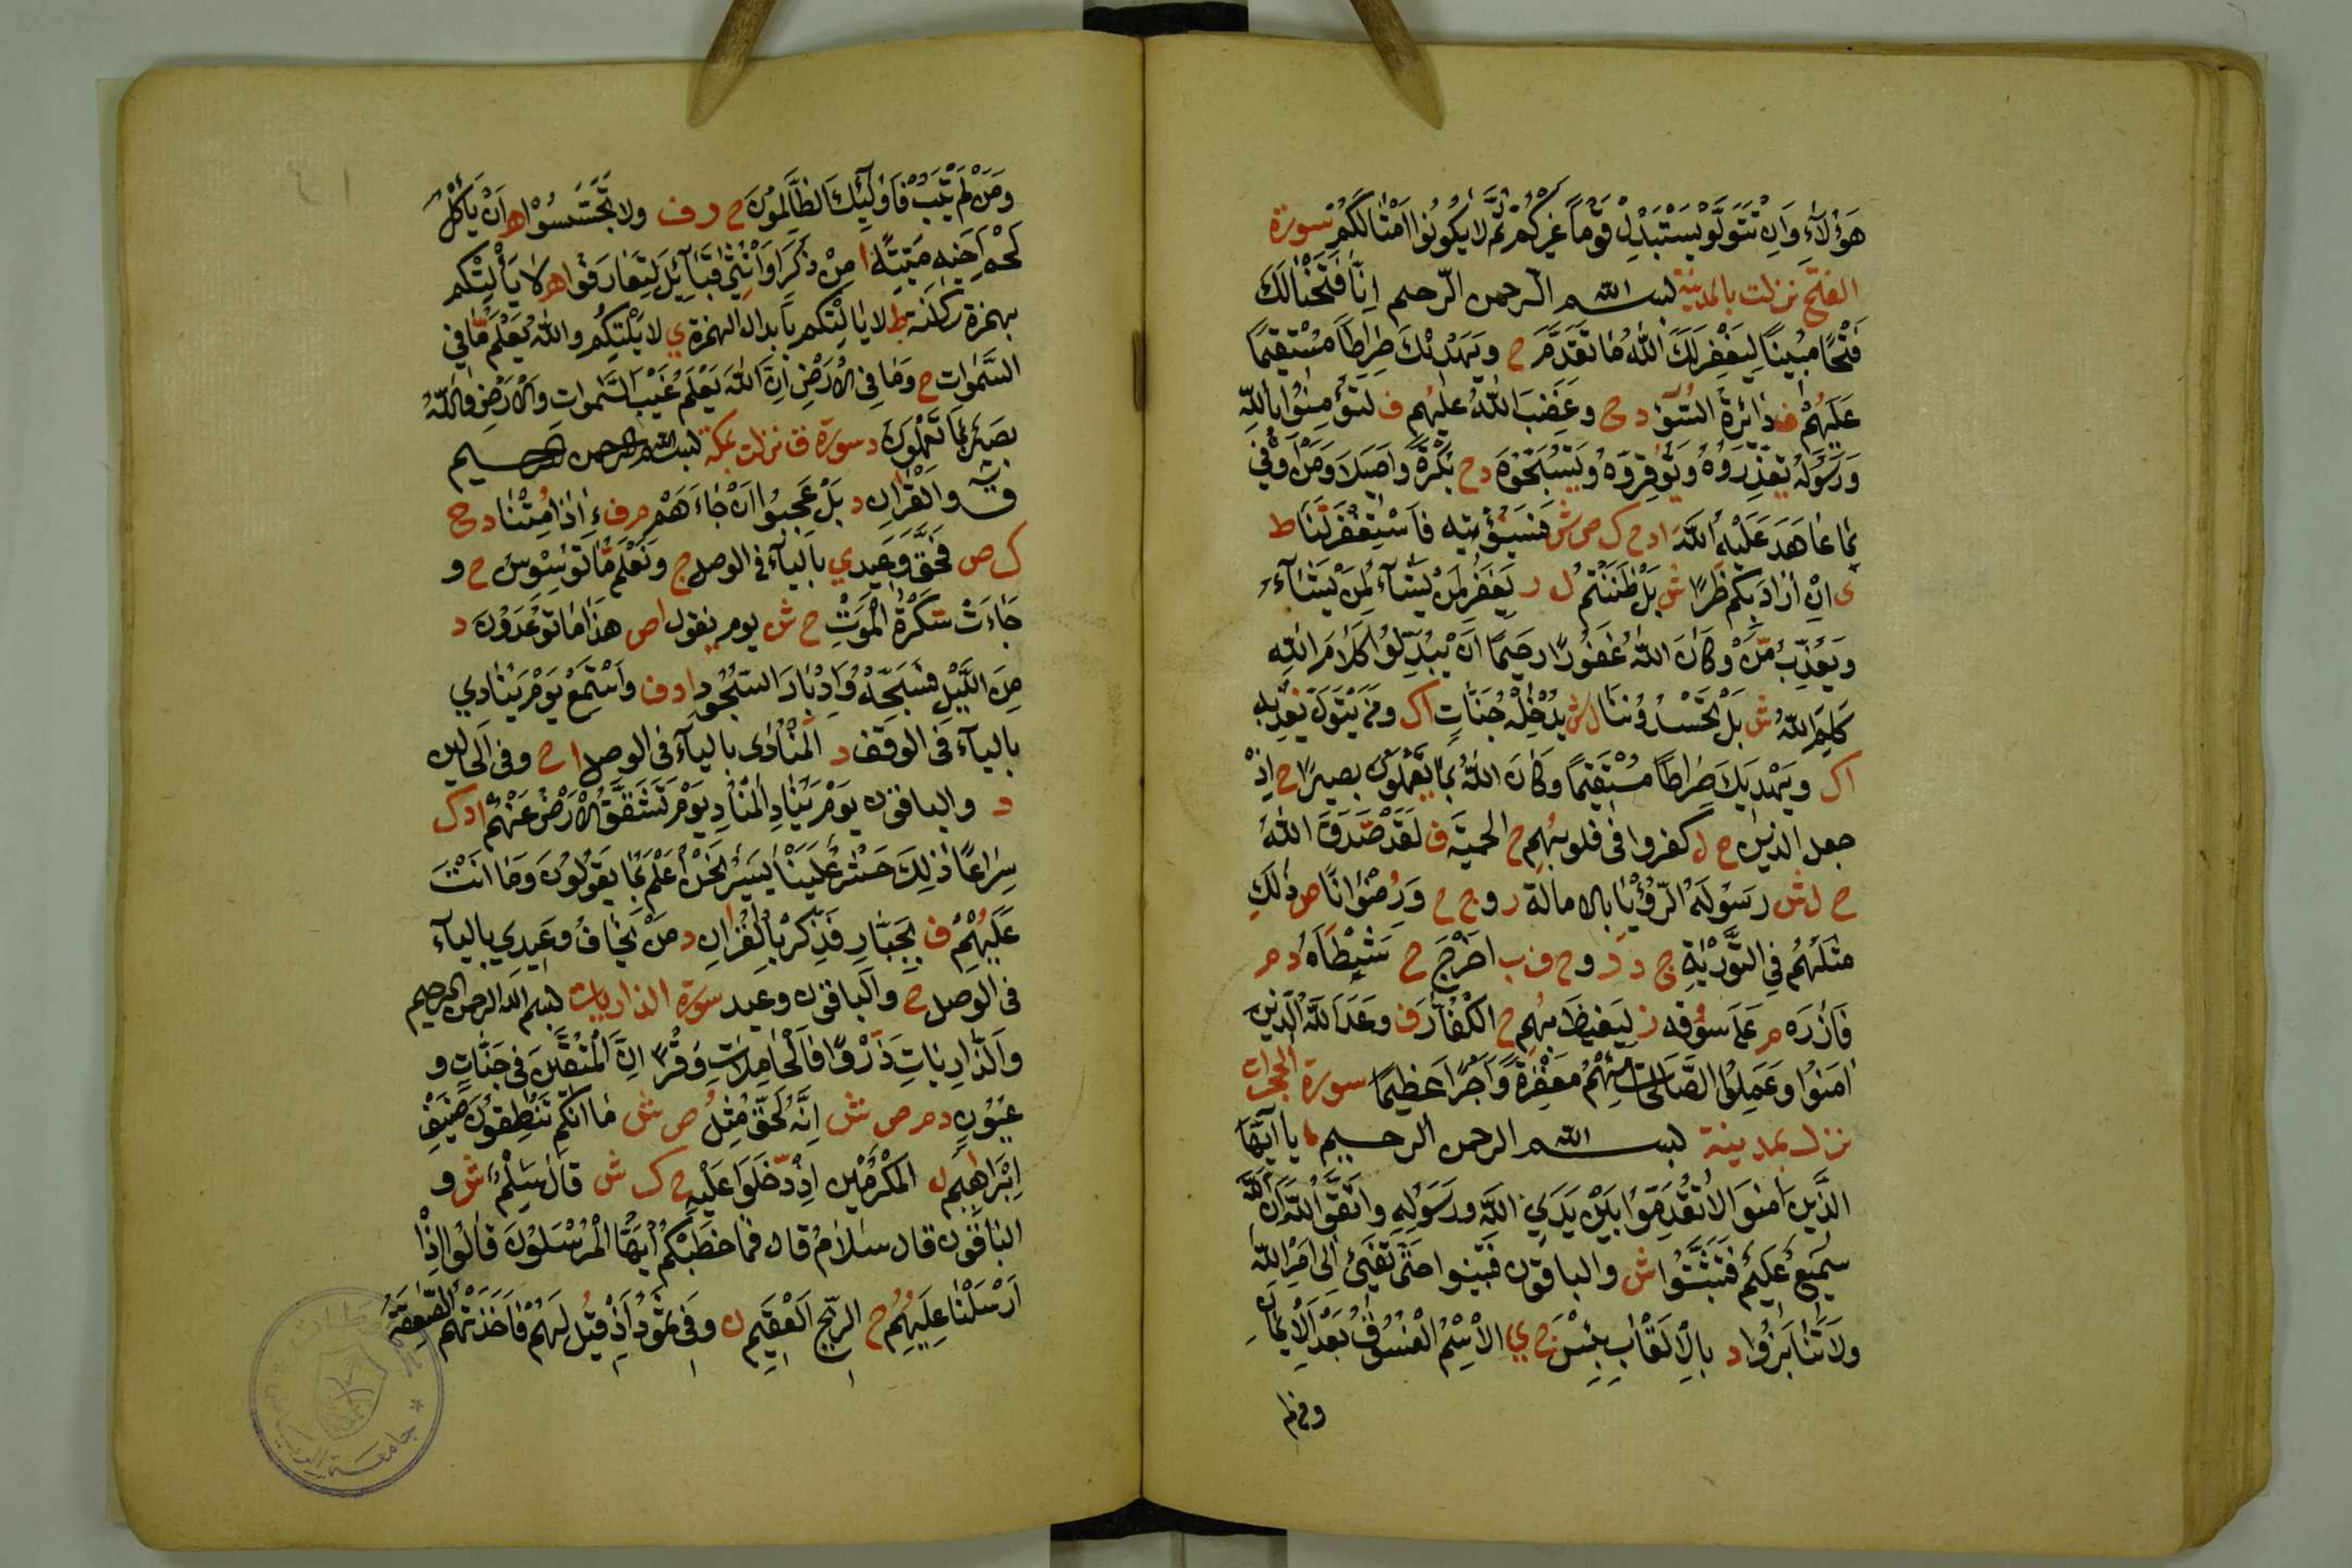 هَؤُلَآءِ وَاِنْ تَتَوَلَّوْ يَسْتَبْدِلْ قَوْمًا غَيْرَكُمْ ثُمَّ لَا يَكُونُوا اَمْثَالَكُمْ سورة
الفتح نزلت بالمدينة بسم الله الرحمن الرحيم اِنَّا فَتَحْنَا لَكَ
فَتْحًا مُبِينًا لِيَغْفِرَ لَكَ اللهُ مَا تَقَدَّمَ ح وَيَهْدِيَكَ صِرَاطًا مُسْتَقِيمًا
عَلَيْهُمْ ف دَائِرَةُ السُّوءِ د ح وَغَضِبَ اللهُ عَلَيْهُمْ ف لتؤْمِنُوا بِاللهِ
وَرَسُولِهِ يُعَزِّرُوهُ وَيُوَقِّرُوهُ وَيُسَبِّحُوهُ د ح بُكْرَةً وَاَصِيلًا وَمَنْ اَوْفَى
بِمَا عَاهَدَ عَلَيْهِ اللهَ ا د ح ك ص ش فَسَيُؤْتِيهِ فَاسْتَغْفِرْ لَنَا ط
ى اِنْ اَرَادَ بِكُمْ ضَرًّا ش بَلْ ظَنَنْتُمْ ل ر يَغْفِرُ لِمَنْ يَشَاءُ لِمَنْ يَشَاءُ
وَيُعَذِّبُ مَنْ وَكَانَ اللهُ غَفُورًا رَحِيمًا اَنْ يُبَدِّلُوا كَلَامَ اللهِ
كَلِمَ اللهِ ش بَلْ تَحْسُدُونَنَا ل ش يُدْخِلْهُ جَنَّاتٍ اك وَمَنْ يَتَوَلَّ نُعَذِّبْهُ
اك وَيَهْدِيَكَ صِرَاطًا مُسْتَقِيمًا وَكَانَ اللهُ بِمَا يَعْمَلُونَ بَصِيرًا ح اِذْ
جعل الذين ح ل كفروا فى قلوبهُم ح الحمية ف لَقَدْ صَدَقَ اللهُ
ح ل ش رَسُولَهُ الرُّؤْيَا بالامالة ر و ج ح وَرُضْوَانًا ص ذَلِكَ
مَثَلُهُمْ فِي التَّوْرَيةِ ج د ر و ح ف ب اَخْرَجَ ح شَطْأَهُ د م
فَأَزَرَهُ م عَلَى سُؤْقِهِ ز لِيَغِيظَ بِهُمِ ح الْكُفَّارَ ف وَعَدَ اللهُ الَّذِينَ
اٰمَنُوا وَعَمِلُوا الصَّالِحَاتِ مِنْهُمْ مَغْفِرَةً وَاَجْرًا عَظِيمًا سورة الحجرات
نزل بمدينة بسم الله الرحمن الرحيم يا اَيُّهَا
الَّذِينَ اٰمَنُوا لَا تُقَدِّمُوا بَيْنَ يَدَيِ اللهِ وَرَسُولِهِ وَاتَّقُوا اللهَ اِنَّ اللهَ
سَمِيعٌ عَلِيمٌ فَتَثَبَّتُوا ش والباقون فتبينوا حَتَّى تَفِيءَ اِلَى اَمْرِ اللهِ
وَلَا تَّنَابَزُوا د بِالْاَلْقَابِ بِئْسَ ج ي الْاِسْمُ الْفُسُوقُ بَعْدَ الْاِيمَانِ
ومن لم
وَمَنْ لَمْ يَتُبْ فَاُولَئِكَ الظَّالِمُونَ ح ر ف ولا تَجَسَّسُوا ه اَنْ يَأْكُلَ
لَحْمَ اَخِيهِ مَيِّتًا ا مِنْ ذَكَرٍ وَاُنْثَى قَبَائِلَ لِتَعَارَفُوا ه لَا يَأْلِتْكُم
بهمزة ساكنة ط لا يالتكم بابدال الهمزة ي لا يَلِتْكُم والله يَعْلَم مَّا في
السَّمٰوات ح وَمَا فِي الْاَرْضِ اِنَّ اللهَ يَعْلَمُ غَيْبَ السَّمٰوات وَالْاَرْضِ وَاللهُ
بَصِيرٌ بِمَا تَعْمَلُونَ د سورة ق نزلت بمكة بسم الله الرحمن الرحيم
ق وَالْقُرَانِ د بَلْ عَجِبُوا اَنْ جَاءَهُمْ م ف ءَاِذَا مُتْنَا د ح
ك ص فَحَقَّ وَعِيدِي بالياء فى الوصل ج وَنَعْلَم مَّا تُوَسْوِسُ ح و
جَاءَتْ سَكْرَةُ الْمَوْتِ ح ش يوم يقول ا ص هَذَا مَا تُوعَدُونَ د
مِنَ اللَّيْلِ فَسَبِّحْهُ وَاِدْبَارَ السُّجُودِ ا د ف وَاسْتَمِعْ يَوْمَ يُنَادِي
بالياء فى الوقف د الْمُنَادِى بالياء فى الوصل ا ح وفى الحالين
د والباقون يَوْمَ يُنَادِ الْمُنَادِ يَوْمَ تَشَّقَّقُ الْاَرْضُ عَنْهُمْ ا د ك
سِرَاعًا ذَلِكَ حَشْرٌ عَلَيْنَا يَسِيرٌ نَحْنُ اَعْلَمُ بِمَا يَقُولُونَ وَمَا اَنْتَ
عَلَيْهُمْ ف بِجَبَّارٍ فَذَكِّرْ بِالْقُرَانِ د مَنْ يَخَافُ وَعِيدِي بالياء
فى الوصل ج والباقون وعيد سورة الذاريات بسم الله الرحمن الرحيم
وَالذَّارِيَاتِ ذَرْوًا فَالْحَامِلَاتِ وِقْرًا اِنَّ الْمُتَّقِينَ فِى جَنَّاتٍ و
عِيُونٍ د م ص ش اِنَّهُ لَحَقٌّ مِثْلُ ص ش مَا اَنَّكُمْ تَنْطِقُونَ ضَيْفِ
اِبْرَاهِيمَ ل الْمُكْرَمِين اِذْ دَّخَلُوا عَلَيْهِ ح ك ش قَالَ سِلْمٌ ش و
الباقون قال سَلَامٌ قَالَ فَمَا خَطْبُكُمْ اَيُّهَا الْمُرْسَلُونَ قَالُوا اِذْ
اَرْسَلْنَا عَلَيْهُمُ ح الرِّيحَ الْعَقِيمَ ل وَفِي ثَمُودَ اِذْ قِيلَ لَهُمْ فَاَخَذَتْهُمُ الصَّعِقَةُ